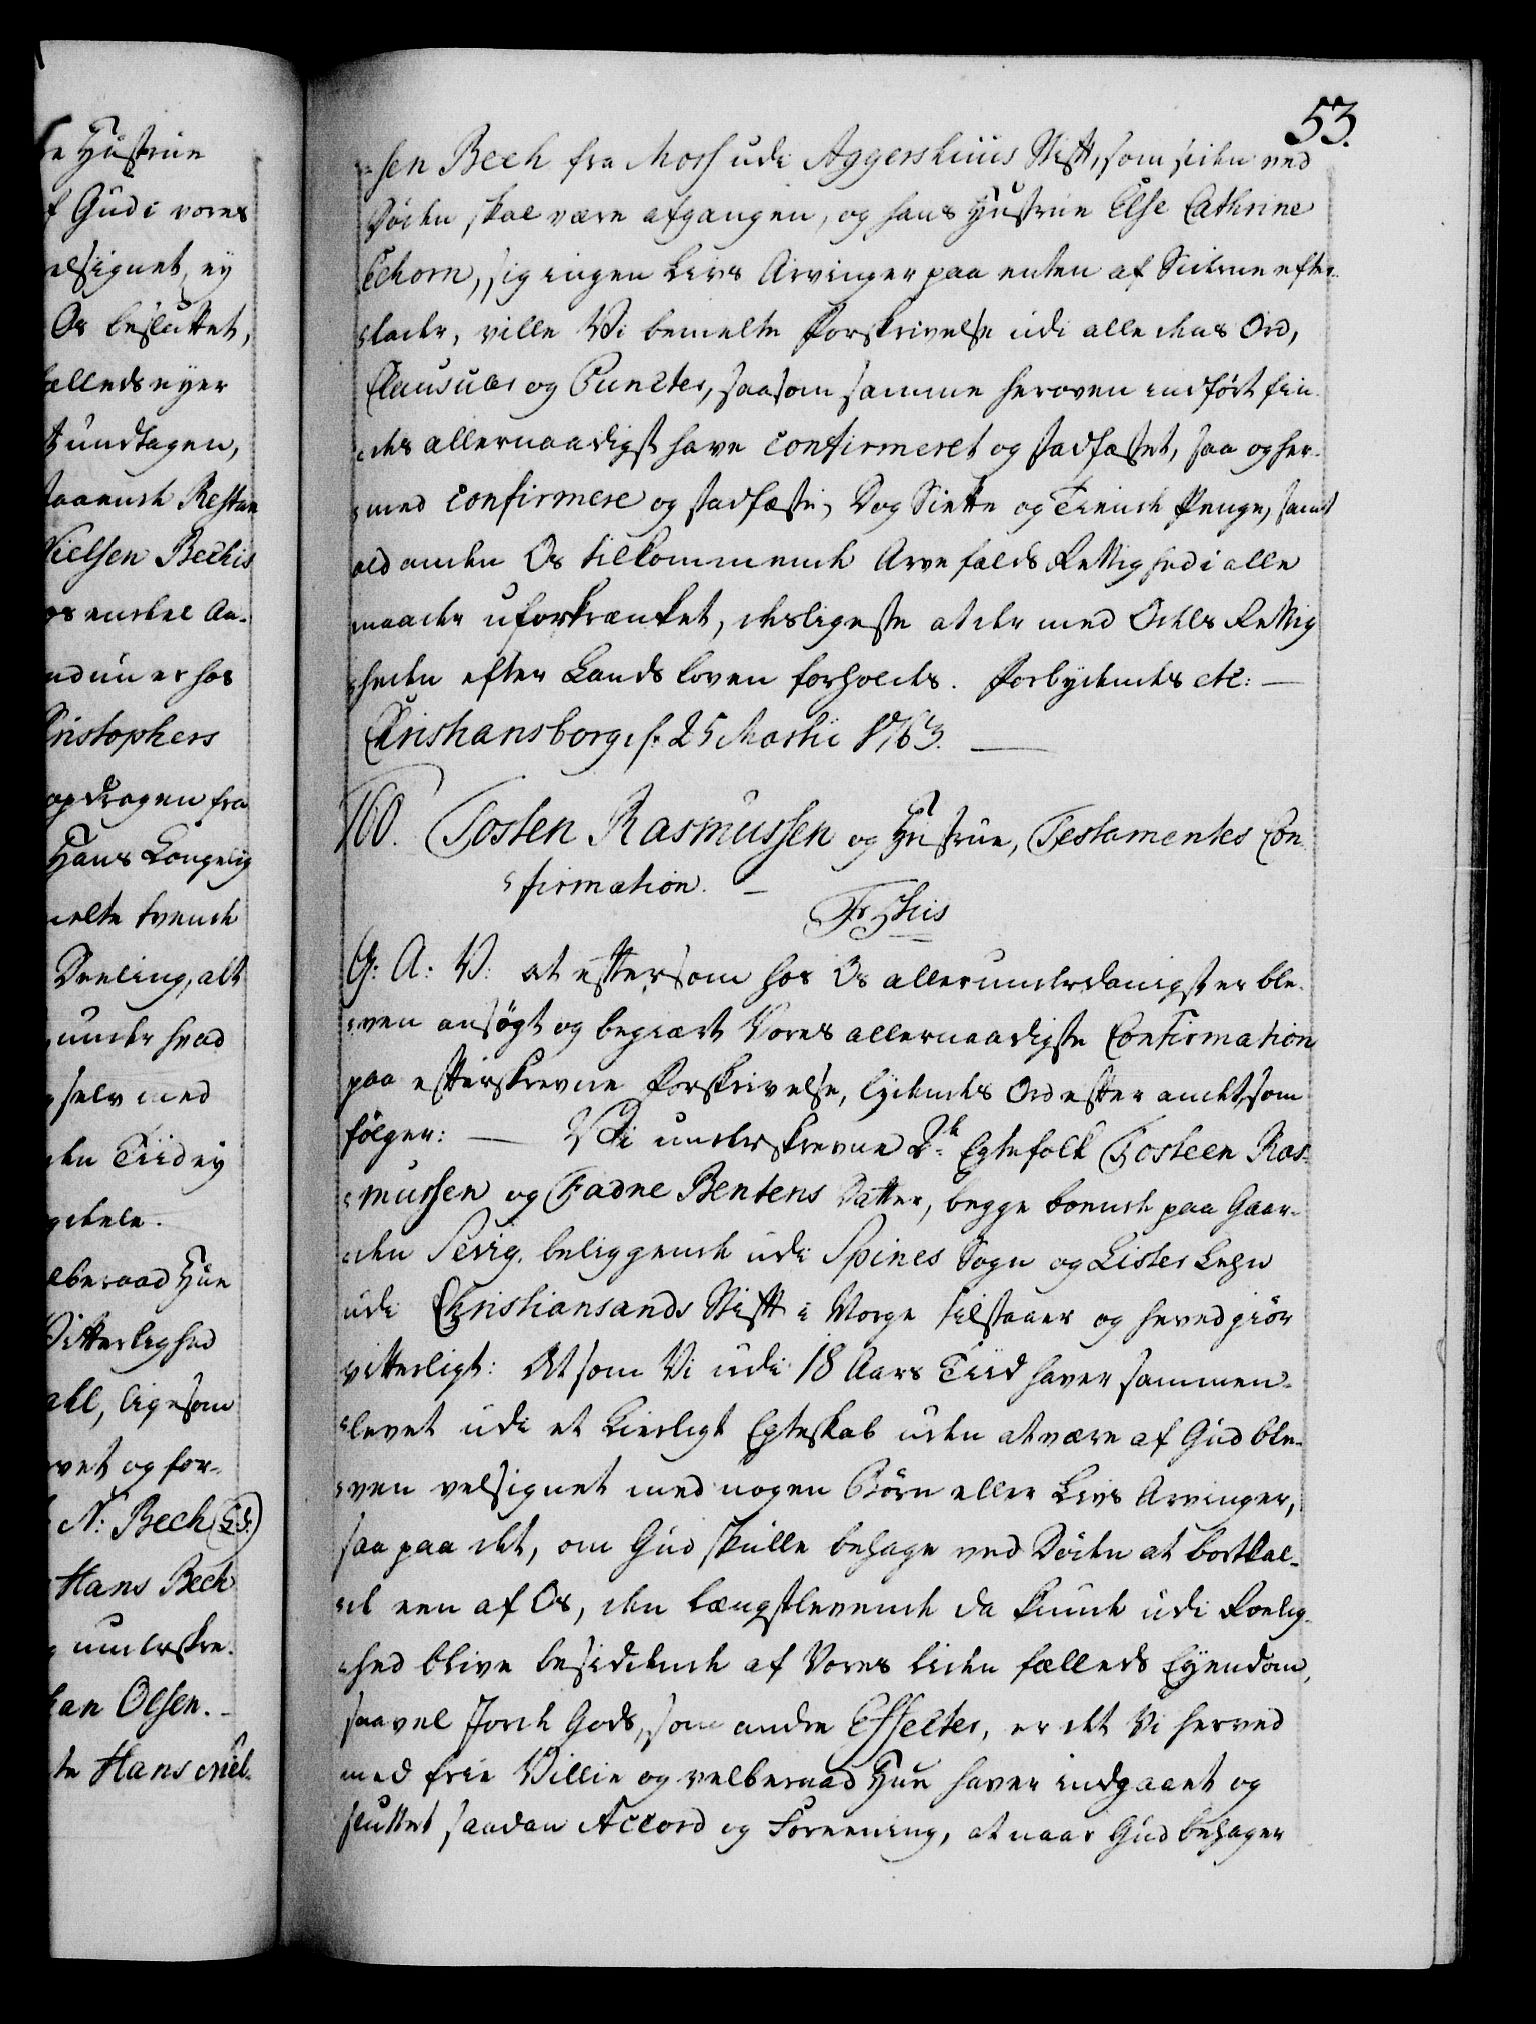 re Hustrue
f Gud i vores
elsignet, ey
Os besluttet,
ælleds eyer
t undtagen,
staaende Resten
Nielsen Bechis
os endeel An-
endnu er hos
Cristophers
opdragen fra
Hans Længelig
melte tvende
Deeling, alt
under hvad
selv med
den Tiid ey
gedeele.
elberaad Hue
Vitterlighed
all, ligesom
evet og for-
N: Bech (L:S:)
Hans Bech
underskre-
han Olsen. -
te Hans Niel-
53.
-sen Bech fra Moss udi Aggershuus Stift, som siden ved
Døden skal være afgangen, og hans Hustrue Else Cathrine
Echorn, sig ingen Livs Arvinger paa enten af Siderne efter-
-lader, ville Vi bemelte Forskrivelse udi alle dens Ord,
Clausuler og Puncter, saasom samme heroven indført fin-
-des allernaadigst have confirmeret og stadfæstet, saa og her-
-med confirmere og stadfæste, Dog Siette og Tiende Penge, samt
ald anden Os tilkommende Arve falds Rettighed i alle
maader uforkrænket, desligeste at der med Odels Rettig-
-heden efter Lands Loven forholdes. Forbydendes etc: —
Christiansborg d. 25 Martii 1763. —
160. Tosten Rasmussen og Hustrue, Testamentes Con-
-firmation. —
Fr: 5tus
G: A: V: at eftersom hos Os allerunderdanigst er ble-
-ven ansøgt og begiært Vores allernaadigste Confirmation
paa efterskrevne Forskrivelse, lydendes Ord efter andet, som
følger: — Vi underskrevne 2de Egtefolk Tosteen Ras-
-mussen og Tadne Bentens Datter, begge boende paa Gaar-
-den Sevig, beliggende udi Spines Sogn og Lister Lehn
udi Christiansands Stift i Norge tilstaaer og herved giør
vitterligt: At som Vi udi 18 Aars Tiid haver sammen-
-levet udi et Kierligt Egteskab uden at være af Gud ble-
-ven velsignet med nogen Børn eller Livs Arvinger,
saa paa det, om Gud skulle behage ved Døden at bortkal-
-de een af Os, den længstlevende da kunde udi Roelig-
-hed blive besiddende af Vores liden fælleds Eyendom,
saavel Jorde Gods, som andre Effecter, er det Vi herved
med frie Villie og velberaad Hue haver indgaaet og
sluttet saadan Accord og Foreening, at naar Gud behager